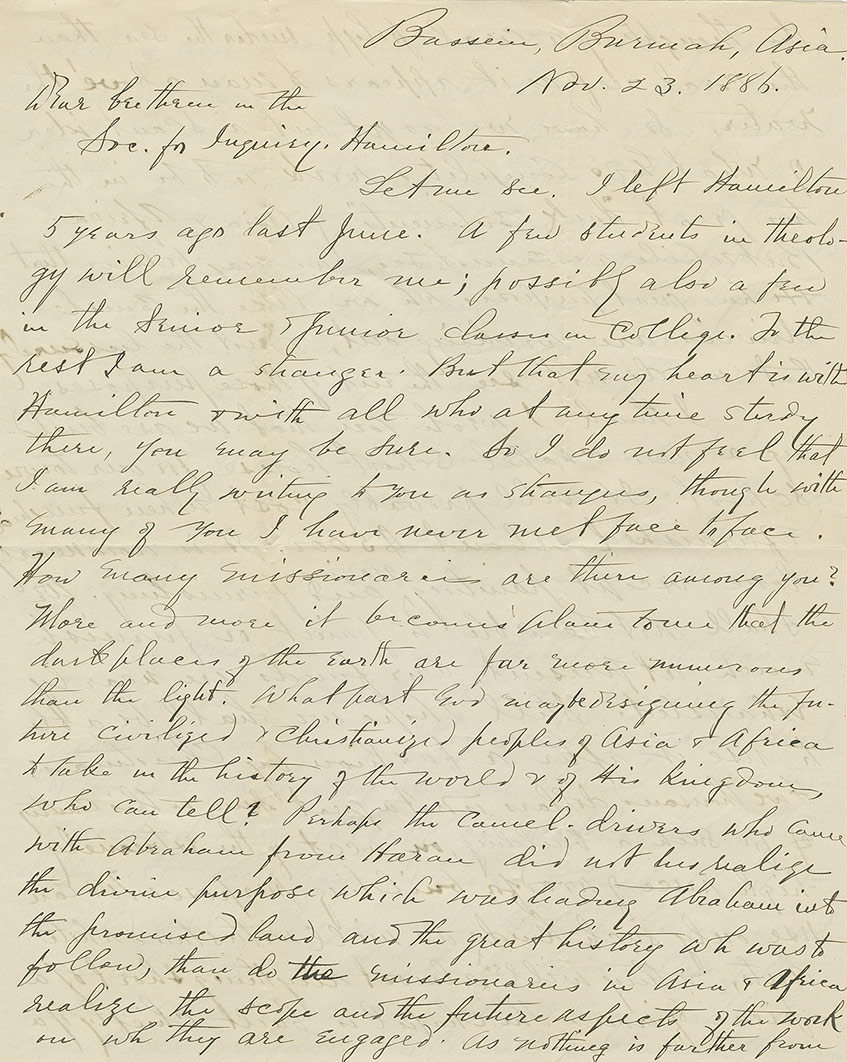 Bassein, Burmah, Asia.
Nov. 23. 1886.
Dear brethren in the
Soc. for Inquiry. Hamilton.
Let me see. I left Hamilton
5 years ago last June. A few students in theolo-
gy will remember me; possibly also a few
in the Senior & Junior classes in College. To the
rest I am a stranger. But that my heart is with
Hamilton & with all who at any time study
there, you may be sure. So I do not feel that
I am really writing to you as strangers, though with
many of you I have never met face to face.
How many missionaries are there among you?
More and more it becomes plain to me that the
dark places of the earth are far more numerous
than the light. What part God may be designing the fu-
ture civilized & Christianized peoples of Asia & Africa
to take in the history of the world & of His Kingdom,
who can tell? Perhaps the camel-drivers who came
with Abraham from Haran did not less realize
the divine purpose which was leading Abraham into
the promised land and the great history wh was to
follow, than do the missionaries in Asia & Africa
realize the scope and the future aspects of the work
on wh they are engaged. As nothing is farther from